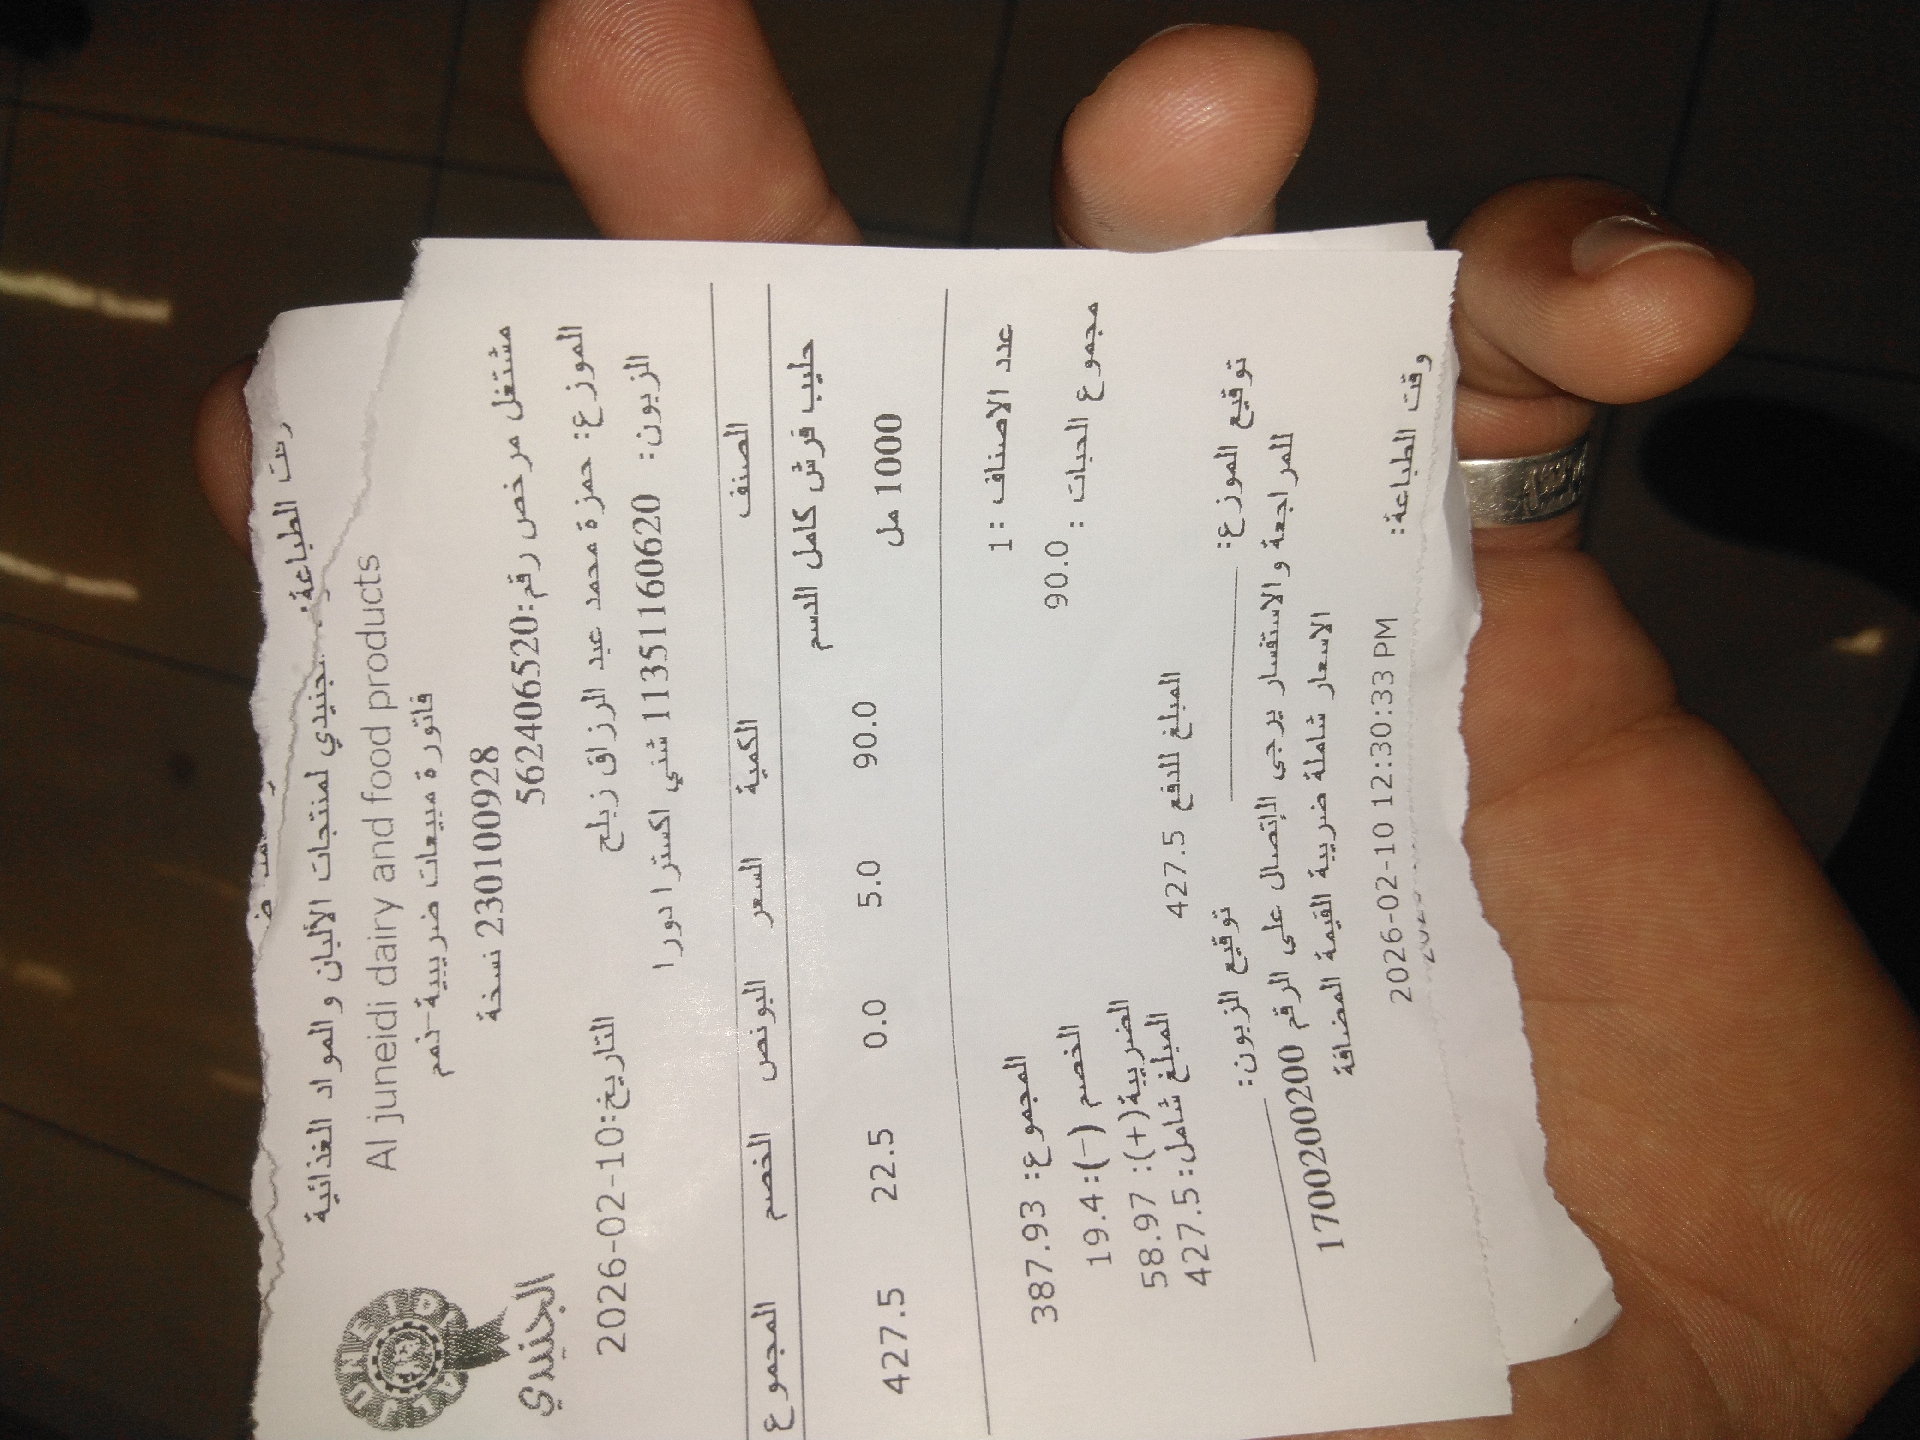 وقت الطباعة:
الجنيدي لمنتجات الألبان والمواد الغذائية
Al juneidi dairy and food products
فاتورة مبيعات ضريبية-ذمم
230100928 نسخة
مشتغل مرخص رقم:562406520
AL JUNEIDI
الجنيدي
الموزع: حمزة محمد عبد الرزاق زبلح
التاريخ:2026-02-10
الزبون: 11351160620 شني اكسترا دورا
الصنف الكمية السعر البونص الخصم المجموع
حليب فرش كامل الدسم 1000 مل 90.0 5.0 0.0 22.5 427.5
عدد الاصناف :1
المجموع: 387.93
مجموع الحبات : 90.0
الخصم (-):19.4
الضريبة(+): 58.97
المبلغ للدفع 427.5
المبلغ شامل:427.5
توقيع الموزع: توقيع الزبون:
للمراجعة والاستفسار يرجى الإتصال على الرقم 1700200200
الاسعار شاملة ضريبة القيمة المضافة
وقت الطباعة: 2026-02-10 12:30:33 PM